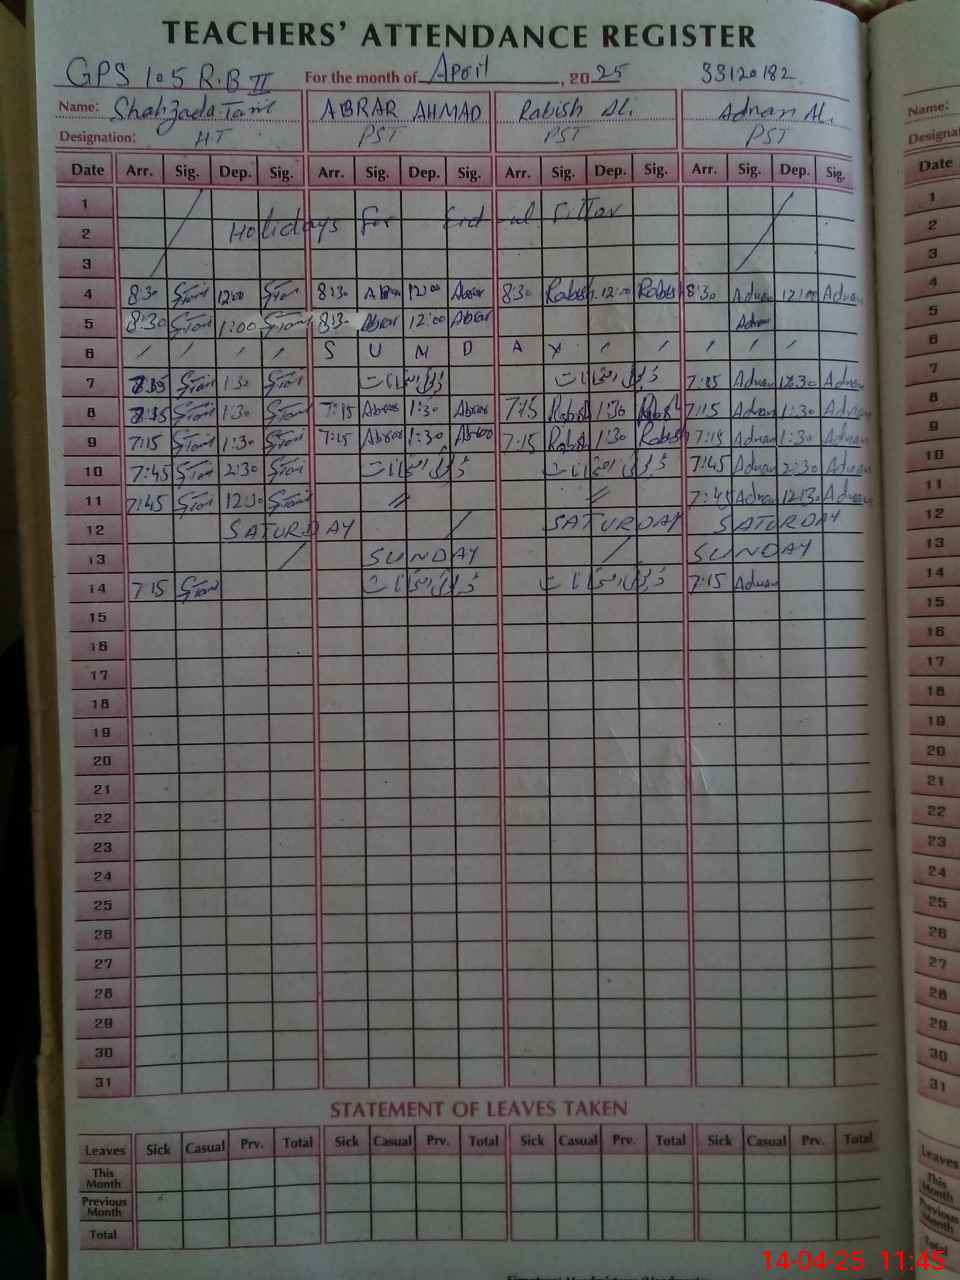 TEACHERS' ATTENDANCE REGISTER
GPS 105 R.B II For the month of April, 2025 33120182
Name: Shahzada ABRAR AHMAD Rabish Ali. Adnan Ali. Name:
Designation: H.T PST PST PST
Date Arr. Sig. Dep. Sig. Arr. Sig. Dep. Sig. Arr. Sig. Dep. Sig. Arr. Sig. Dep. Sig. Date
1 1
2 Holidays For Eid ul Fittar 2
3 3
4 8:30 12:00 8:30 12:00 Abrar 8:30 Rabish 12:00 Rabish 8:30 Adnan 12:00 Adnan 4
5 8:30 1:00 8:30 Abrar 12:00 Abrar Adnan 5
6 S U N D A Y 6
7 1:30 7:15 Adnan 12:30 Adnan 7
8 1:30 7:15 Abrar 1:30 Abrar 7:15 Rabish 1:30 7:15 Adnan 1:30 Adnan 8
9 7:15 1:30 7:15 Abrar 1:30 Abrar 7:15 Rabish 1:30 Rabish 7:15 Adnan 1:30 Adnan 9
10 7:45 2:30 7:45 Adnan 2:30 Adnan 10
11 7:45 12:30 〃 〃 7:45 Adnan 12:30 Adnan 11
12 SATURDAY SATURDAY SATURDAY 12
13 SUNDAY SUNDAY 13
14 7:15 7:15 Adnan 14
15 15
16 16
17 17
18 18
19 19
20 20
21 21
22 22
23 23
24 24
25 25
26 26
27 27
28 28
29 29
30 30
31 31
STATEMENT OF LEAVES TAKEN
Leaves Sick Casual Prv. Total Sick Casual Prv. Total Sick Casual Prv. Total Sick Casual Prv. Total Leaves
This Month This Month
Previous Month Previous Month
Total Total
14-04-25 11:45